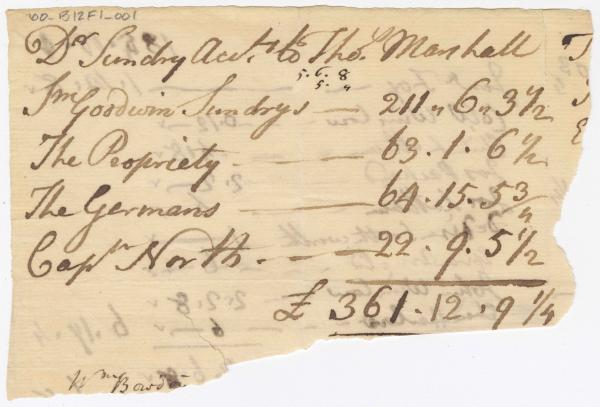 00-B12F1-001
Dr Sundry Accts to Thos Marshall
5.6.8
5."
Jm Goodwin Sundrys — 211 " 6 " 3 1/2
The Propriety — — — 63 . 1 . 6 1/2
The Germans — — — 64 . 15 . 5 3/4
Captn North . — — — 22 . 9 . 5 1/2
£ 361 . 12 . 9 1/4
Wm Bowdo